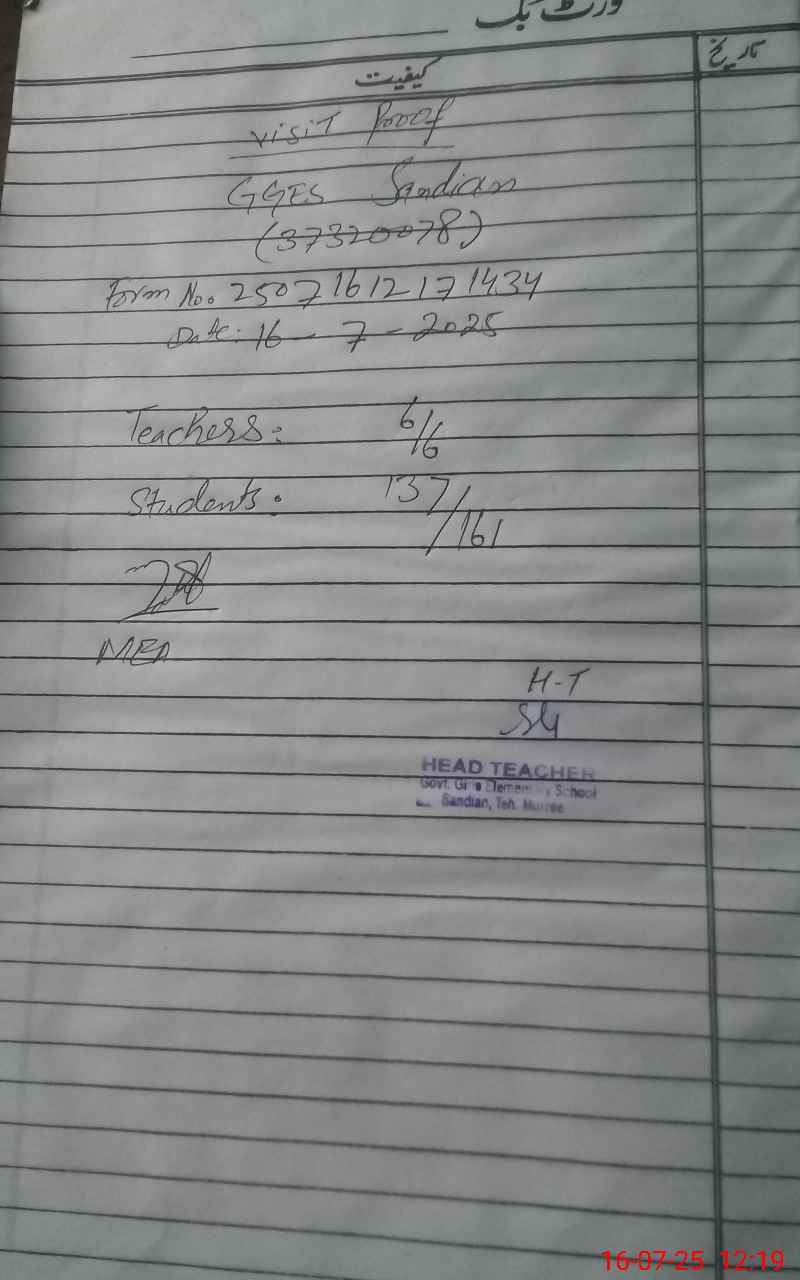 وزٹ بک
کیفیت
تاریخ
Visit Proof
GGES Sandian
(37320078)
Form No. 25071612171434
Date: 16-7-2025
Teachers: 6/6
Students: 137/161
MEA
H-T
HEAD TEACHER
Govt. Girls Elementary School
Sandian, Teh. Murree
16-07-25 12:19